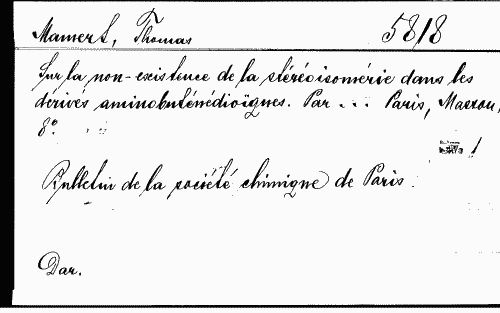 Mamert, Thomas 5818
Sur la non-existence de la stéréoisomérie dans les
dérivés aminobuténédioïques. Par ... Paris, Masson,
8°
1
Bulletin de la société chimique de Paris.
Dar.